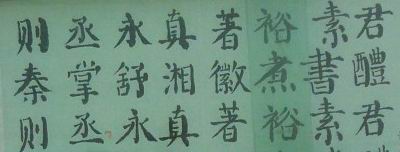 君醴君
素書素
裕煮裕
著徽著
真湘真
永舒永
丞掌丞
則秦則